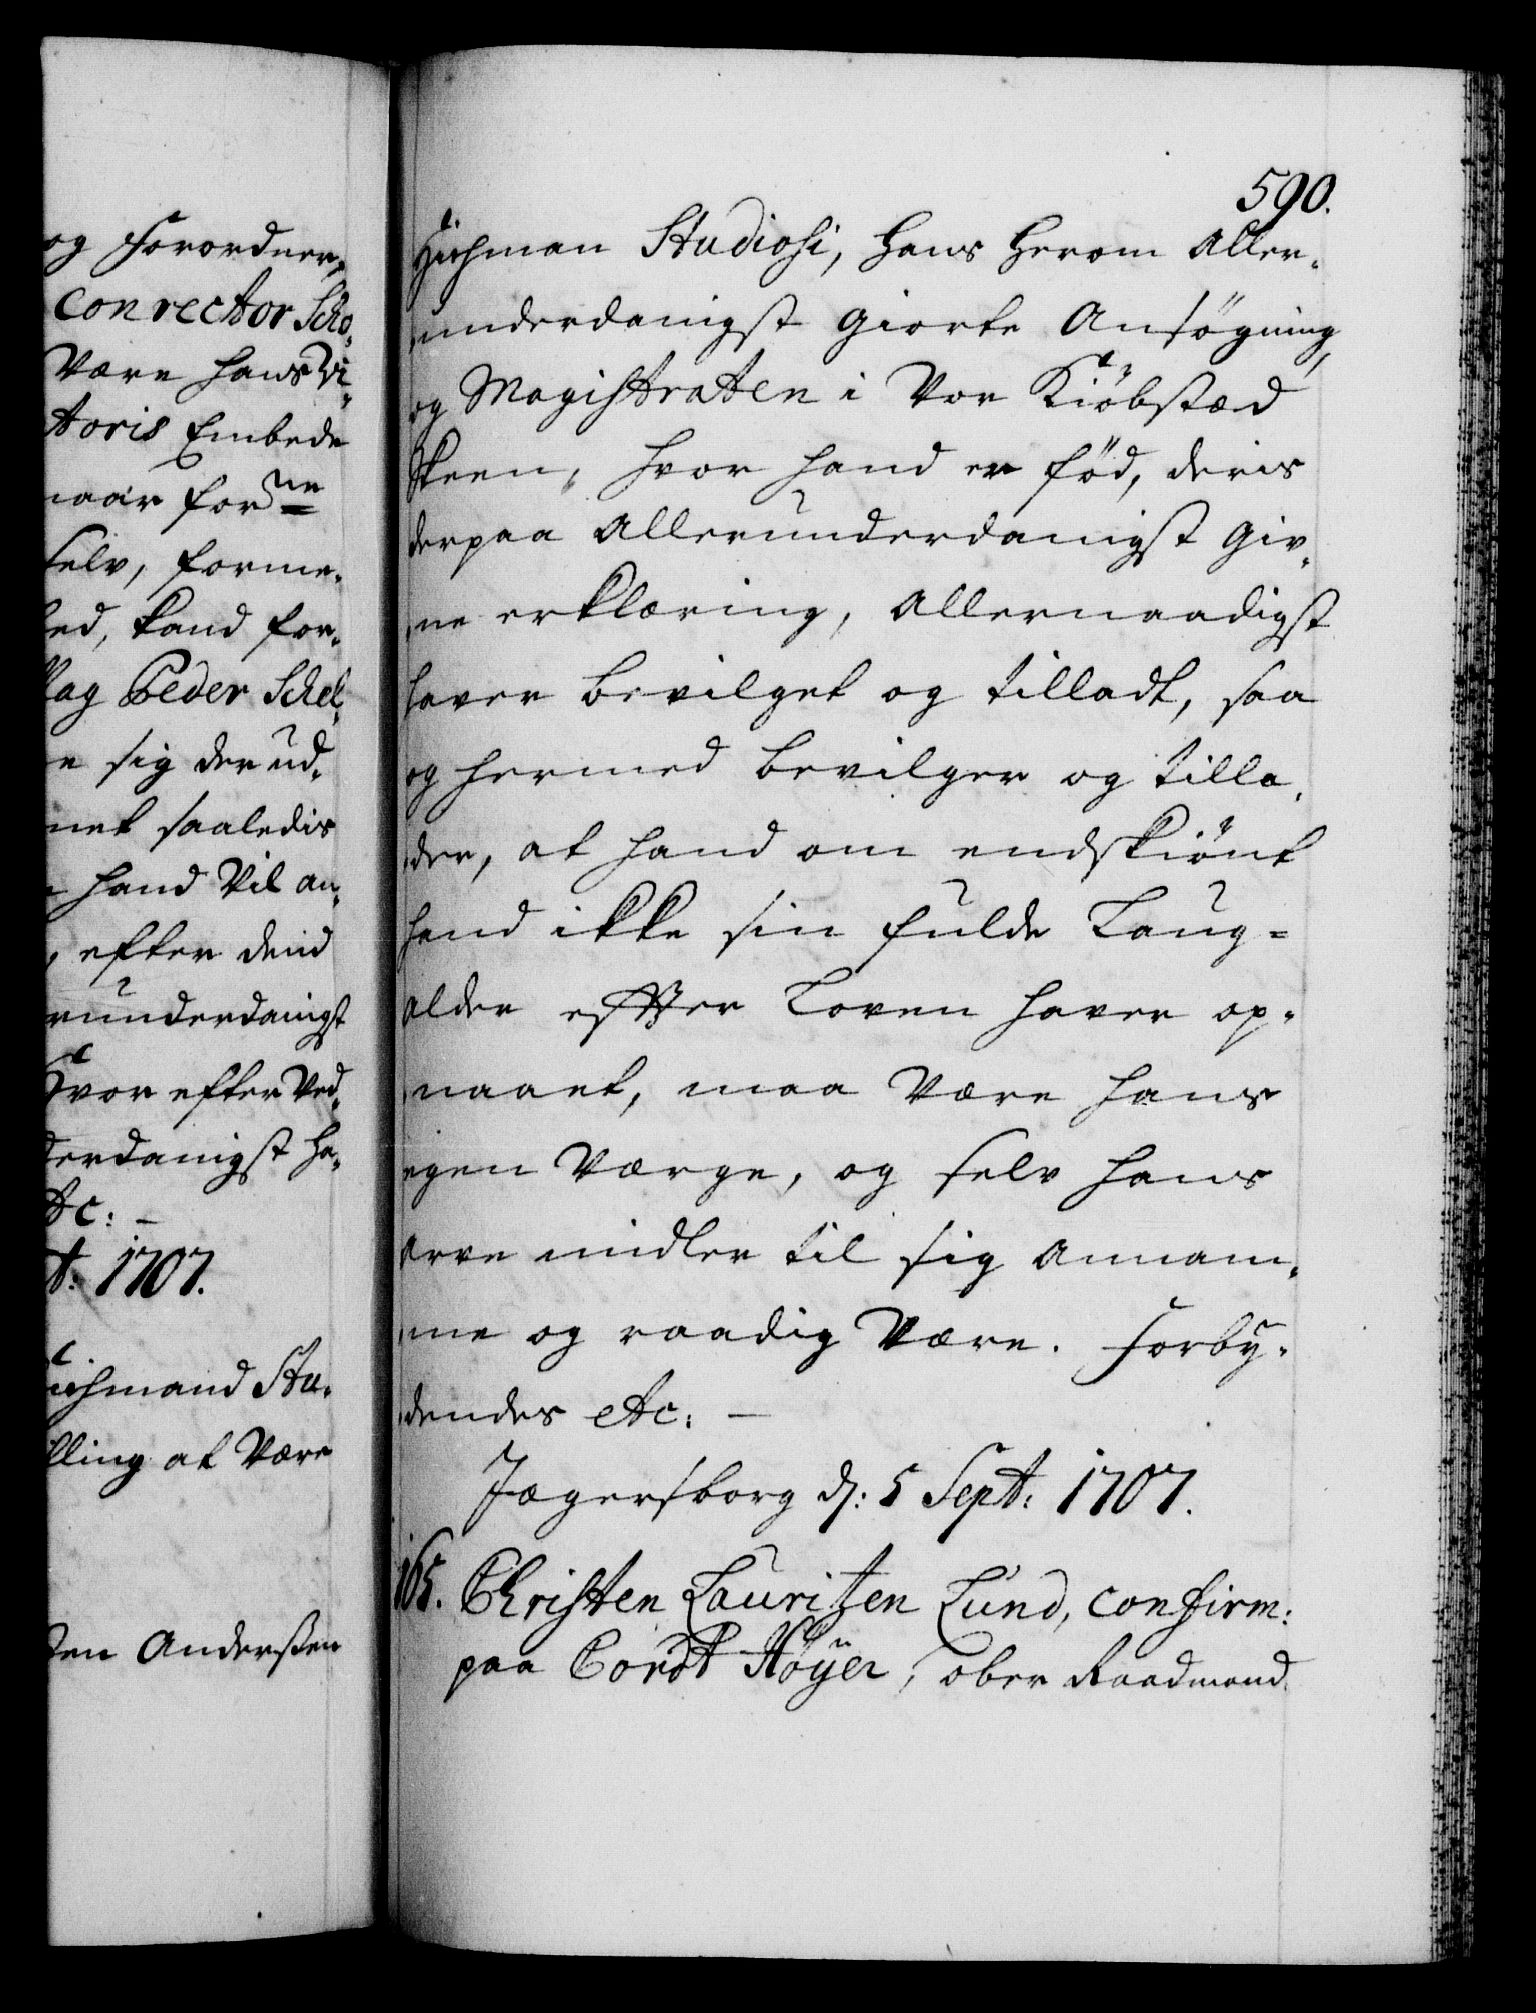 og Forordner,
Conrector Scho-
Være hans Vi-
toris Embede
naar forne
selv, forme-
hed, kand for-
Mag Peder Schel-
sig der ud-
net saaledis
hand Vil an-
efter dend
runderdanigst
Hvor efter Ved-
derdanigst ha-
etc: –
t: 1707.
ichmand Stu-
lling at Være
ten Andersen
590.
Hichman Studiosi, hans herom Aller-
underdanigst giorte Ansögning,
og Magistraten i Vor Kiöbstæd
Skeen, hvor hand er fød, deris
derpaa Allerunderdanigst giv-
ne erklæring, Allernaadigst
haver bevilget og tilladt, saa
og hermed bevilger og tilla-
der, at hand om endskiönt
hand ikke sin fulde Laug-
alder efter Loven haver op-
naaet, maa Være hans
egen Værge, og selv hans
arve midler til sig annam-
me og raadig Være. Forby-
dendes etc: –
Jægersborg d: 5 Sept: 1707.
165. Christen Lauritzen Lund, confirm:
paa Cordt Höyer, ober Raadmand